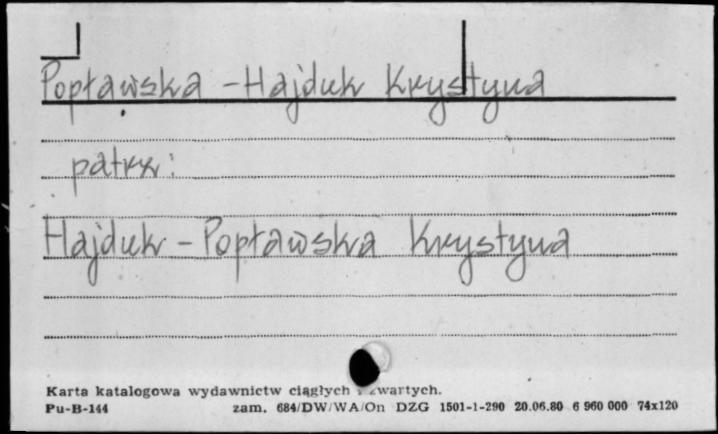 Popławska - Hajduk Krystyna
patrz:
Hajduk - Popławska Krystyna
Karta katalogowa wydawnictw ciągłych i zwartych.
Pu-B-144 zam. 684/DW/WA/On DZG 1501-1-290 20.06.80 6 960 000 74x120